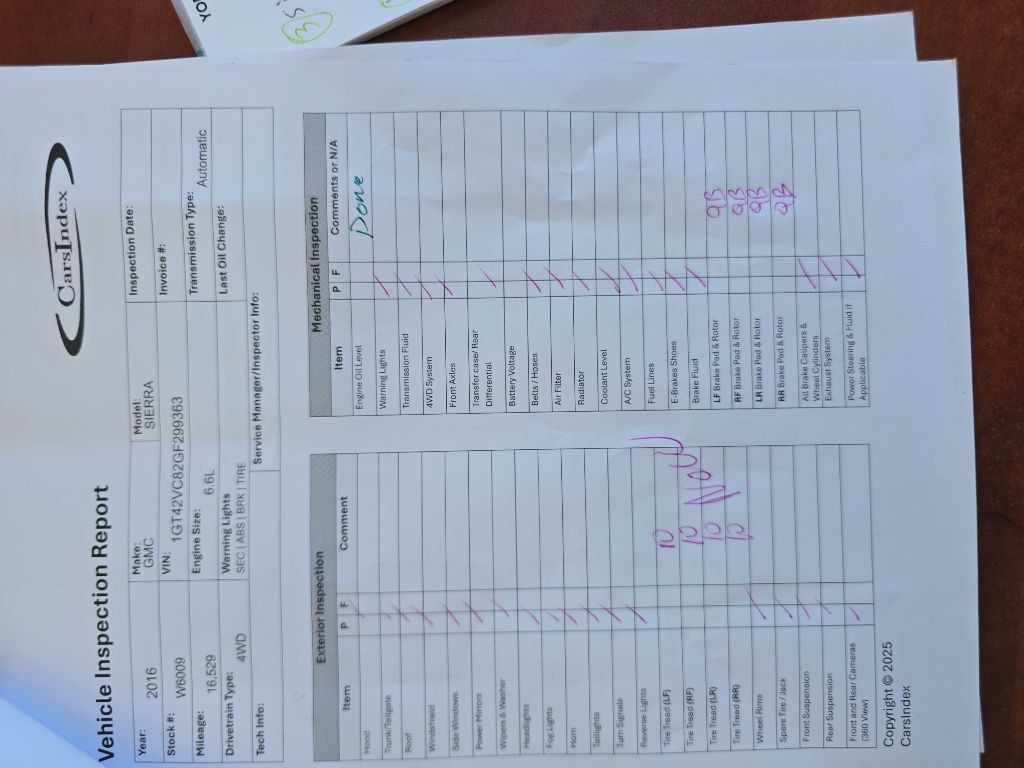 CarsIndex
Vehicle Inspection Report
Year: 2016 Make: GMC Model: SIERRA Inspection Date:
Stock #: W6009 VIN: 1GT42VC82GF299363 Invoice #:
Mileage: 16,529 Engine Size: 6.6L Transmission Type: Automatic
Drivetrain Type: 4WD Warning Lights SEC | ABS | BRK | TIRE Last Oil Change:
Tech Info: Service Manager/Inspector Info:
Exterior Inspection
Item P F Comment
Hood
Trunk/Tailgate
Roof
Windshield
Side Windows
Power Mirrors
Wipers & Washer
Headlights
Fog Lights
Horn
Taillights
Turn Signals
Reverse Lights
Tire Tread (LF) 10
Tire Tread (RF) 10
Tire Tread (LR) 10
Tire Tread (RR) 10
Wheel Rims
Spare Tire / Jack
Front Suspension
Rear Suspension
Front and Rear Cameras
(360 View)
Mechanical Inspection
Item P F Comments or N/A
Engine Oil Level Done
Warning Lights
Transmission Fluid
4WD System
Front Axles
Transfer case/ Rear
Differential
Battery Voltage
Belts / Hoses
Air Filter
Radiator
Coolant Level
A/C System
Fuel Lines
E-Brakes Shoes
Brake Fluid
LF Brake Pad & Rotor
RF Brake Pad & Rotor
LR Brake Pad & Rotor
RR Brake Pad & Rotor
All Brake Calipers &
Wheel Cylinders
Exhaust System
Power Steering & Fluid If
Applicable
Copyright © 2025
CarsIndex